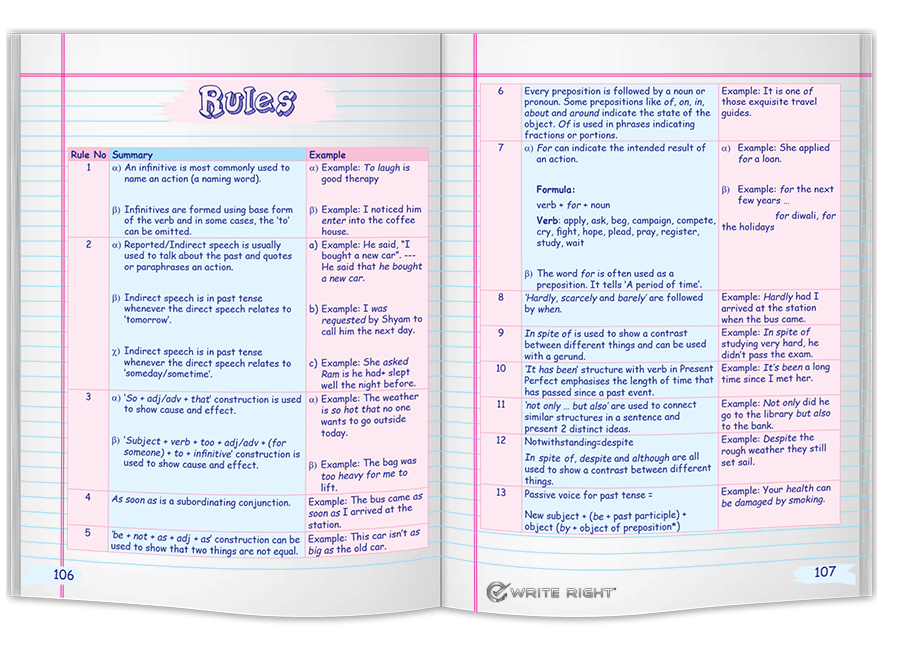 Rules
Rule No Summary Example
1 α) An infinitive is most commonly used to
name an action (a naming word).
α) Example: To laugh is
good therapy
β) Infinitives are formed using base form
of the verb and in some cases, the 'to'
can be omitted.
β) Example: I noticed him
enter into the coffee
house.
2 α) Reported/Indirect speech is usually
used to talk about the past and quotes
or paraphrases an action.
a) Example: He said, "I
bought a new car". ---
He said that he bought
a new car.
β) Indirect speech is in past tense
whenever the direct speech relates to
'tomorrow'.
b) Example: I was
requested by Shyam to
call him the next day.
χ) Indirect speech is in past tense
whenever the direct speech relates to
'someday/sometime'.
c) Example: She asked
Ram is he had+ slept
well the night before.
3 α) 'So + adj/adv + that' construction is used
to show cause and effect.
α) Example: The weather
is so hot that no one
wants to go outside
today.
β) 'Subject + verb + too + adj/adv + (for
someone) + to + infinitive' construction is
used to show cause and effect.
β) Example: The bag was
too heavy for me to
lift.
4 As soon as is a subordinating conjunction.
Example: The bus came as
soon as I arrived at the
station.
5 'be + not + as + adj + as' construction can be
used to show that two things are not equal.
Example: This car isn't as
big as the old car.
106
6 Every preposition is followed by a noun or
pronoun. Some prepositions like of, on, in,
about and around indicate the state of the
object. Of is used in phrases indicating
fractions or portions.
Example: It is one of
those exquisite travel
guides.
7 α) For can indicate the intended result of
an action.
Formula:
verb + for + noun
Verb: apply, ask, beg, campaign, compete,
cry, fight, hope, plead, pray, register,
study, wait
α) Example: She applied
for a loan.
β) Example: for the next
few years ...
for diwali, for
the holidays
β) The word for is often used as a
preposition. It tells 'A period of time'.
8 'Hardly, scarcely and barely' are followed
by when.
Example: Hardly had I
arrived at the station
when the bus came.
9 In spite of is used to show a contrast
between different things and can be used
with a gerund.
Example: In spite of
studying very hard, he
didn't pass the exam.
10 'It has been' structure with verb in Present
Perfect emphasises the length of time that
has passed since a past event.
Example: It's been a long
time since I met her.
11 'not only ... but also' are used to connect
similar structures in a sentence and
present 2 distinct ideas.
Example: Not only did he
go to the library but also
to the bank.
12 Notwithstanding=despite
In spite of, despite and although are all
used to show a contrast between different
things.
Example: Despite the
rough weather they still
set sail.
13 Passive voice for past tense =
New subject + (be + past participle) +
object (by + object of preposition*)
Example: Your health can
be damaged by smoking.
WRITE RIGHT™
107